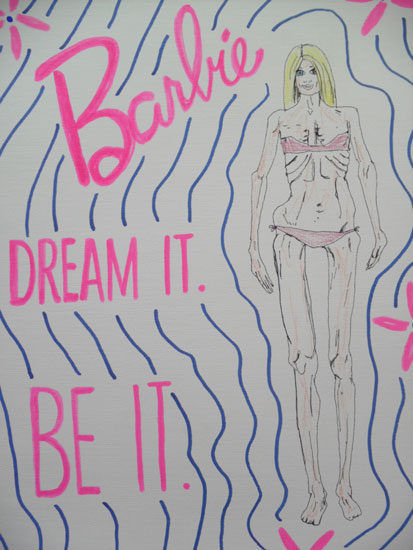 Barbie
DREAM IT.
BE IT.